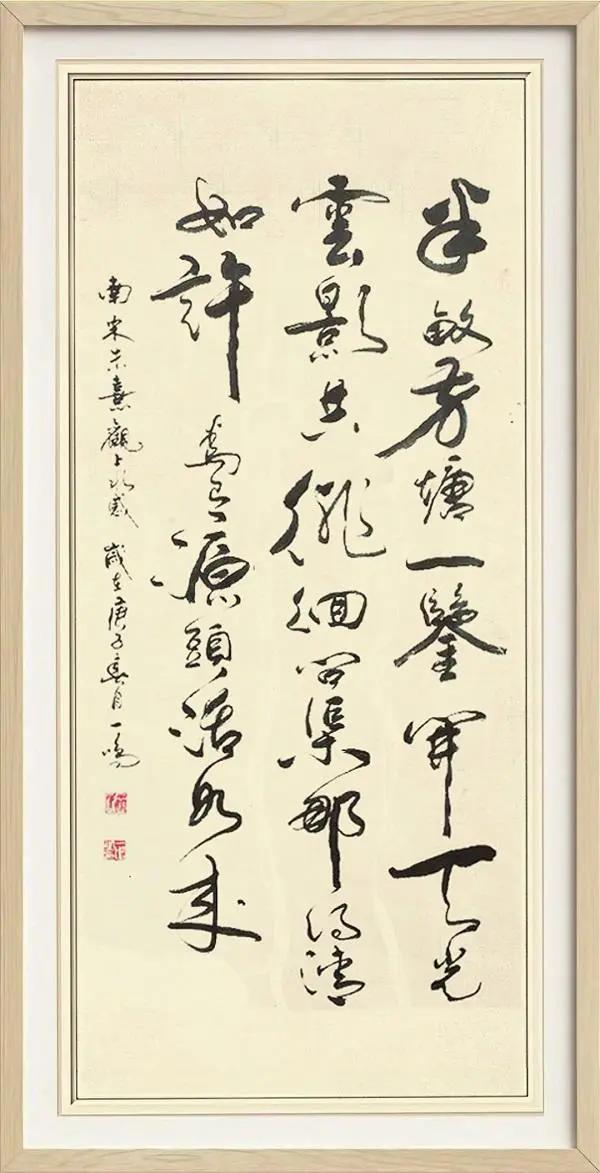 半畝方塘一鑒開天光
雲影共徘徊問渠那得清
如許為有源頭活水來
南宋朱熹觀書有感 歲在庚子春月一鳴